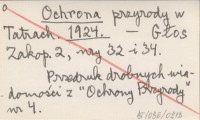 Ochrona przyrody w
Tatrach. 1924. — Głos
Zakop. 2, nry 32 i 34.
Przedruk drobnych wia-
domości z "Ochrony Przyrody"
nr 4.